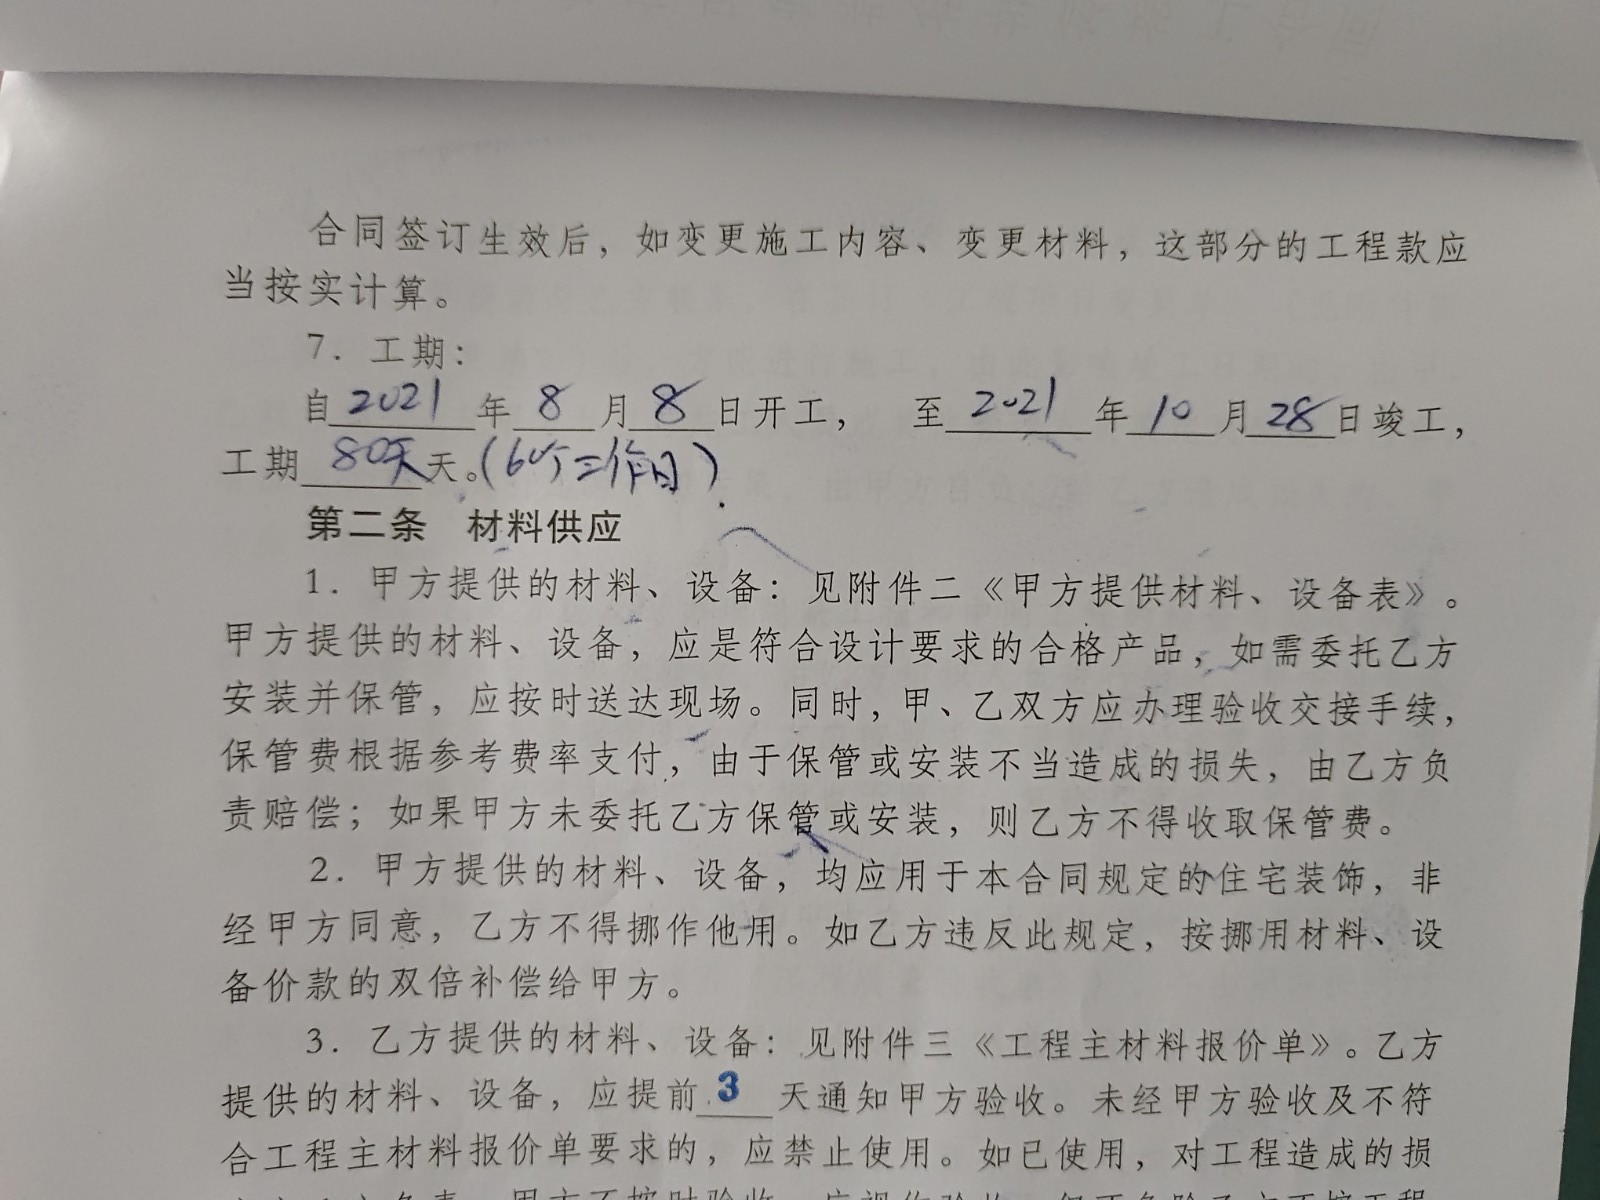 合同签订生效后，如变更施工内容、变更材料，这部分的工程款应
当按实计算。
7. 工期：
自2021年8月8日开工， 至2021年10月28日竣工，
工期80天天。(60个工作日)
第二条 材料供应
1. 甲方提供的材料、设备：见附件二《甲方提供材料、设备表》。
甲方提供的材料、设备，应是符合设计要求的合格产品，如需委托乙方
安装并保管，应按时送达现场。同时，甲、乙双方应办理验收交接手续，
保管费根据参考费率支付，由于保管或安装不当造成的损失，由乙方负
责赔偿；如果甲方未委托乙方保管或安装，则乙方不得收取保管费。
2. 甲方提供的材料、设备，均应用于本合同规定的住宅装饰，非
经甲方同意，乙方不得挪作他用。如乙方违反此规定，按挪用材料、设
备价款的双倍补偿给甲方。
3. 乙方提供的材料、设备：见附件三《工程主材料报价单》。乙方
提供的材料、设备，应提前3天通知甲方验收。未经甲方验收及不符
合工程主材料报价单要求的，应禁止使用。如已使用，对工程造成的损